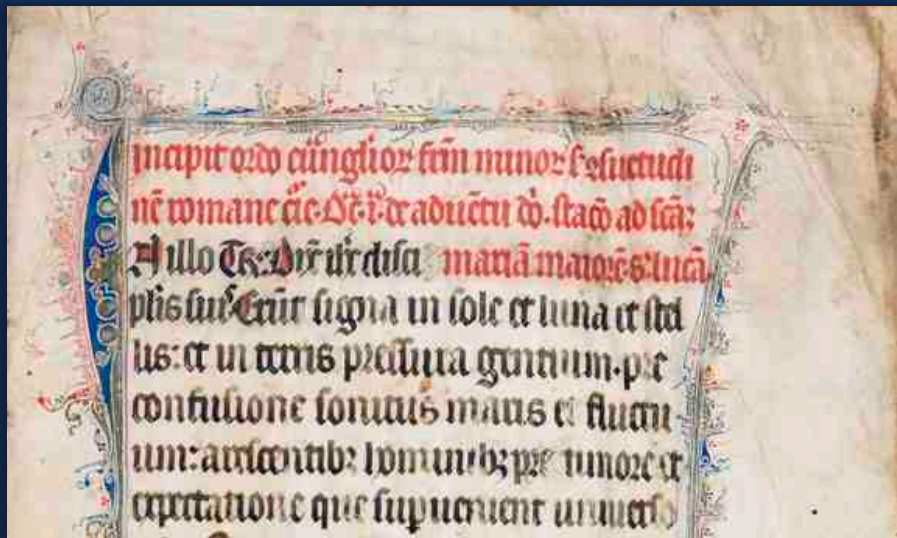 Incipit ordo eūngl̄ior̄ frm̄ minor̄ s̄ ɔsuetudi
nē romane ēccē. Dc̄.ī. de aduētu dō. stacō ad scāʒ
In illo Tꝑe. Dix̄ ihc̄ disci mariā maiorē. s̄. lucā
plīs suis. Erūt signa in sole et luna et stel
lis: et in terris pressura gentium. pre
confusione sonitus maris et fluctu
um: arescentibʒ hominibʒ pre timore et
expectatione que supuenient uniuerso